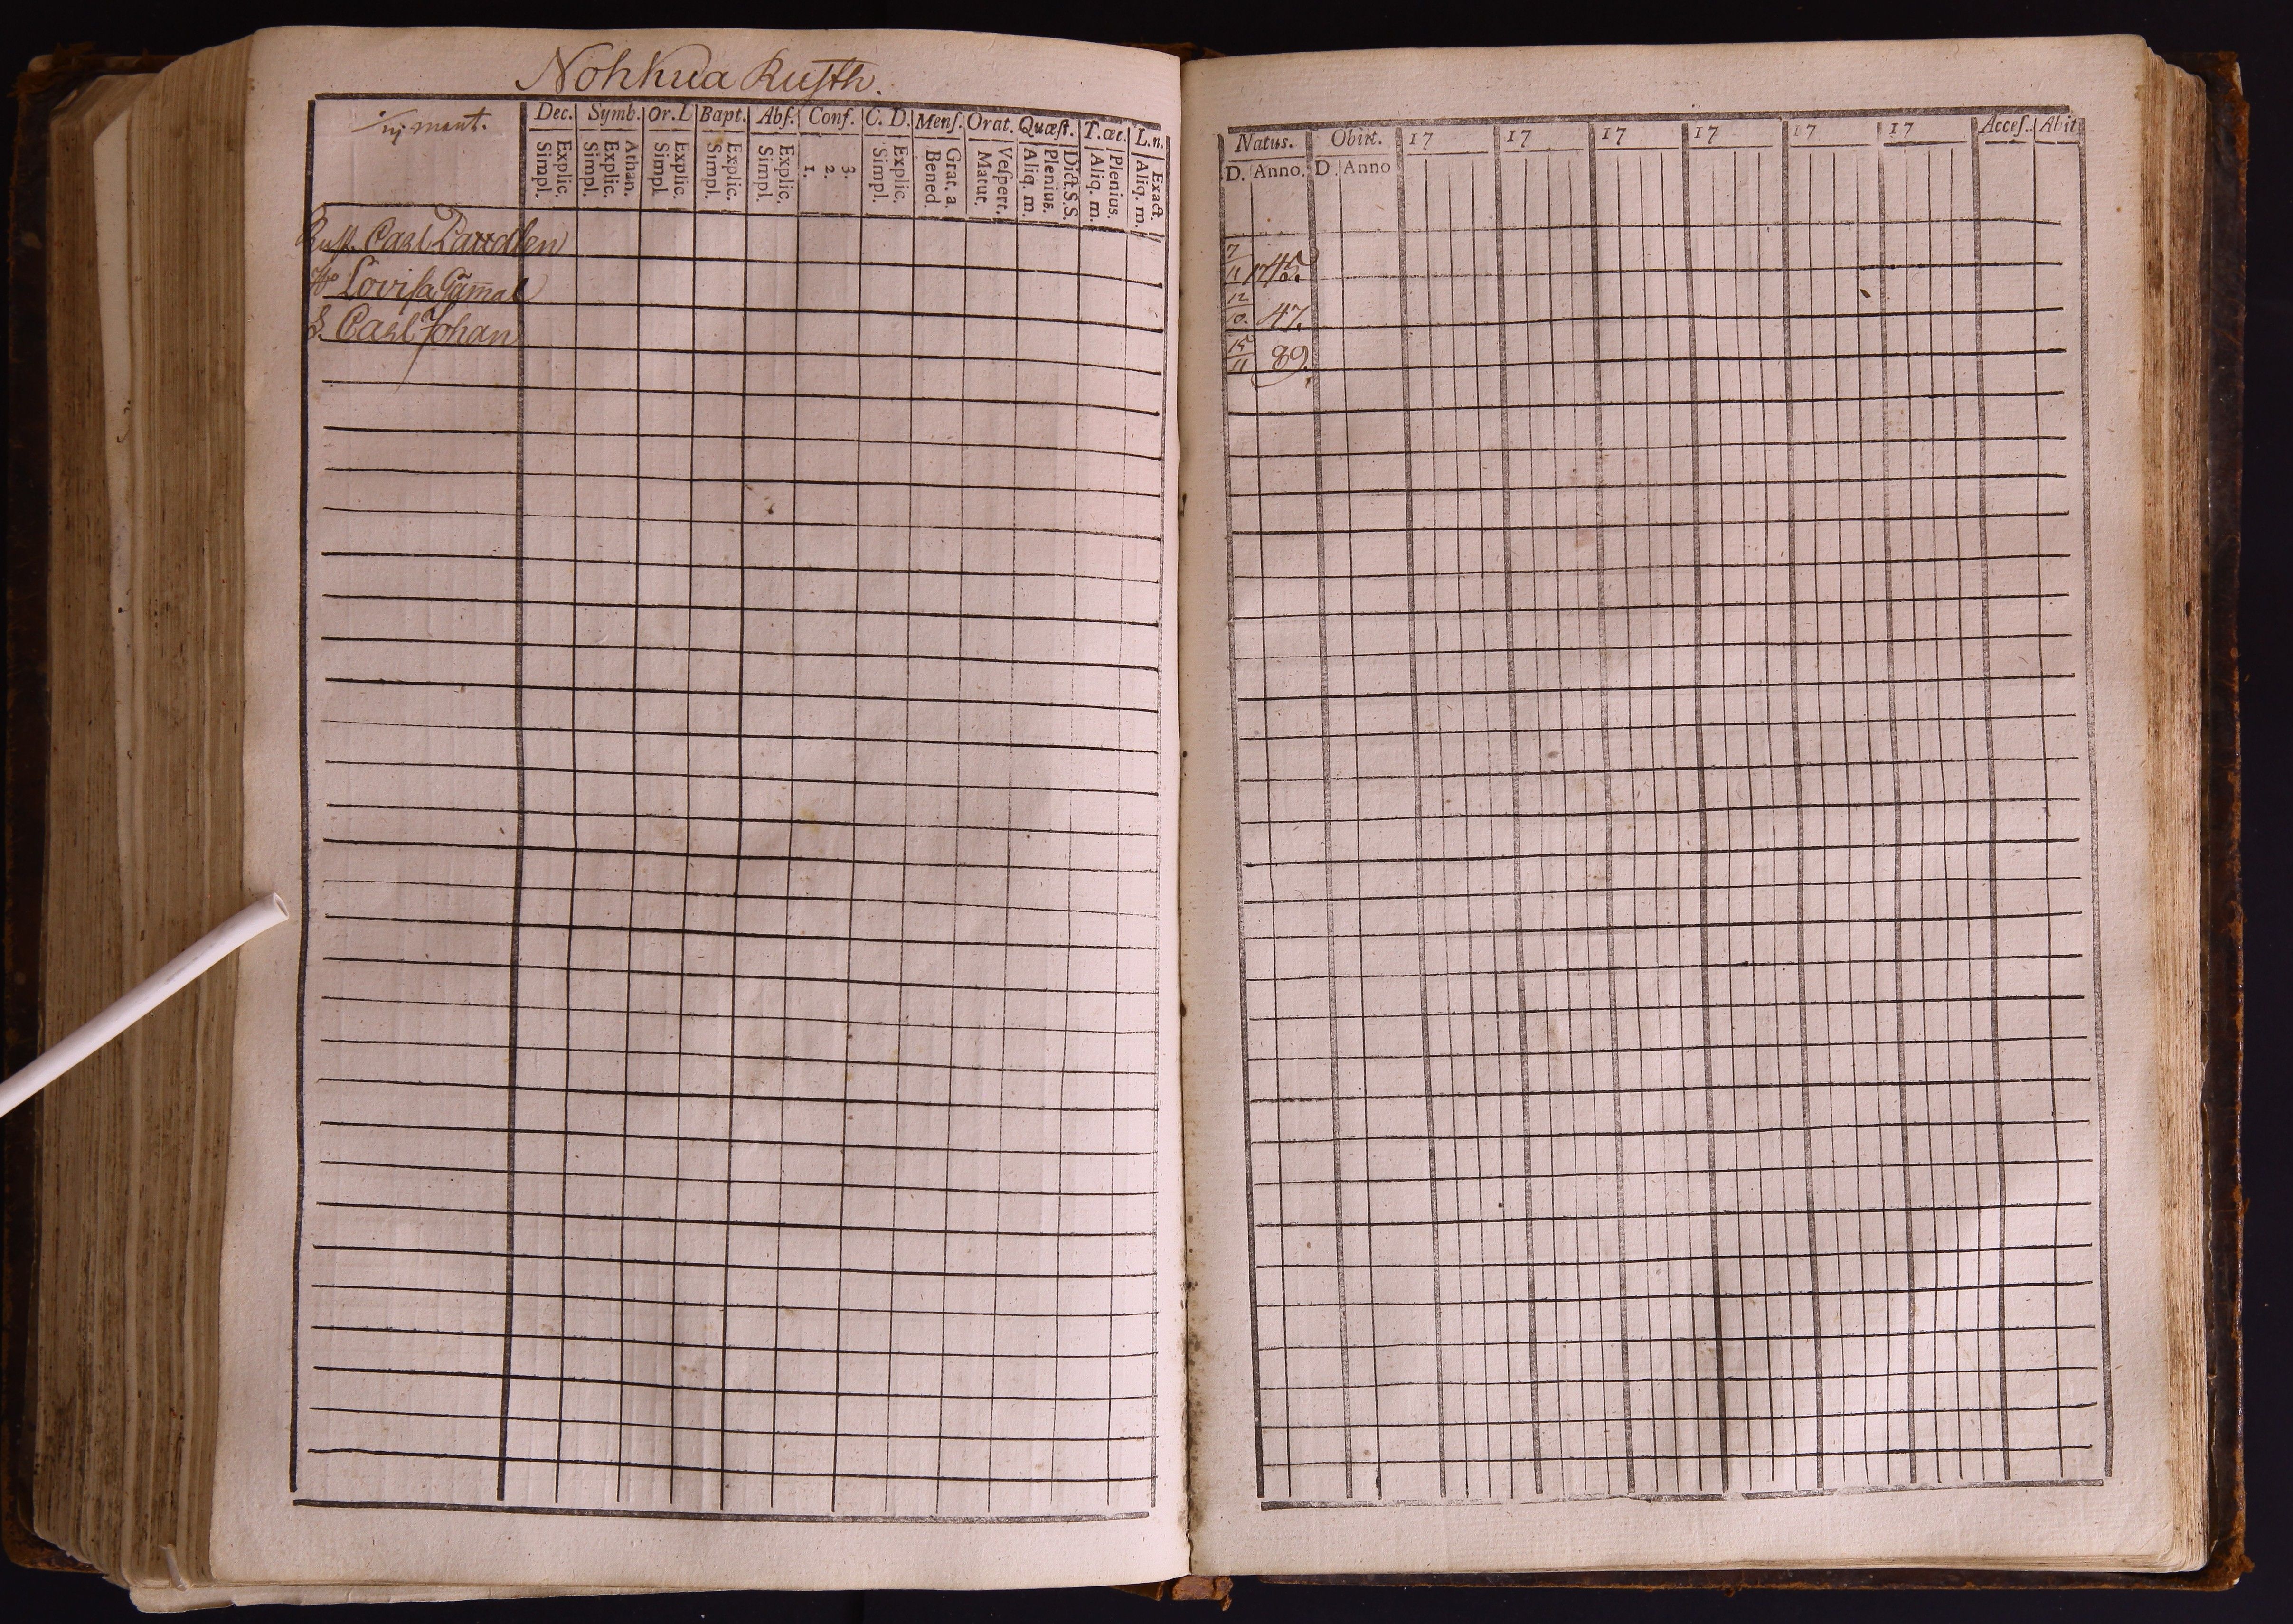 Nohkua Rusth.
mant.
Dec. Symb. Or. L Bapt. Abſ. Conf. C. D. Menſ. Orat. Quæſt. T. œc. L. n.
Simpl. Explic. Simpl. Explic. Athan. Simpl Explic. Simpl. Explic. Simpl. Explic. 1. 2. 3. Simpl. Explic. Bened. Grat. a. Matut. Veſpert. Aliq. m. Plenius. Dict. S. S. Aliq. m. Plenius. Aliq. m. Exact.
Rust. Carl
H. Lovisa Gam̅al
S. Carl Johan
Natus. Obiit. 17 17 17 17 17 17 Acceſ. Abit
D. Anno. D. Anno
7/11 1745.
12/10. 47.
15/11 89.